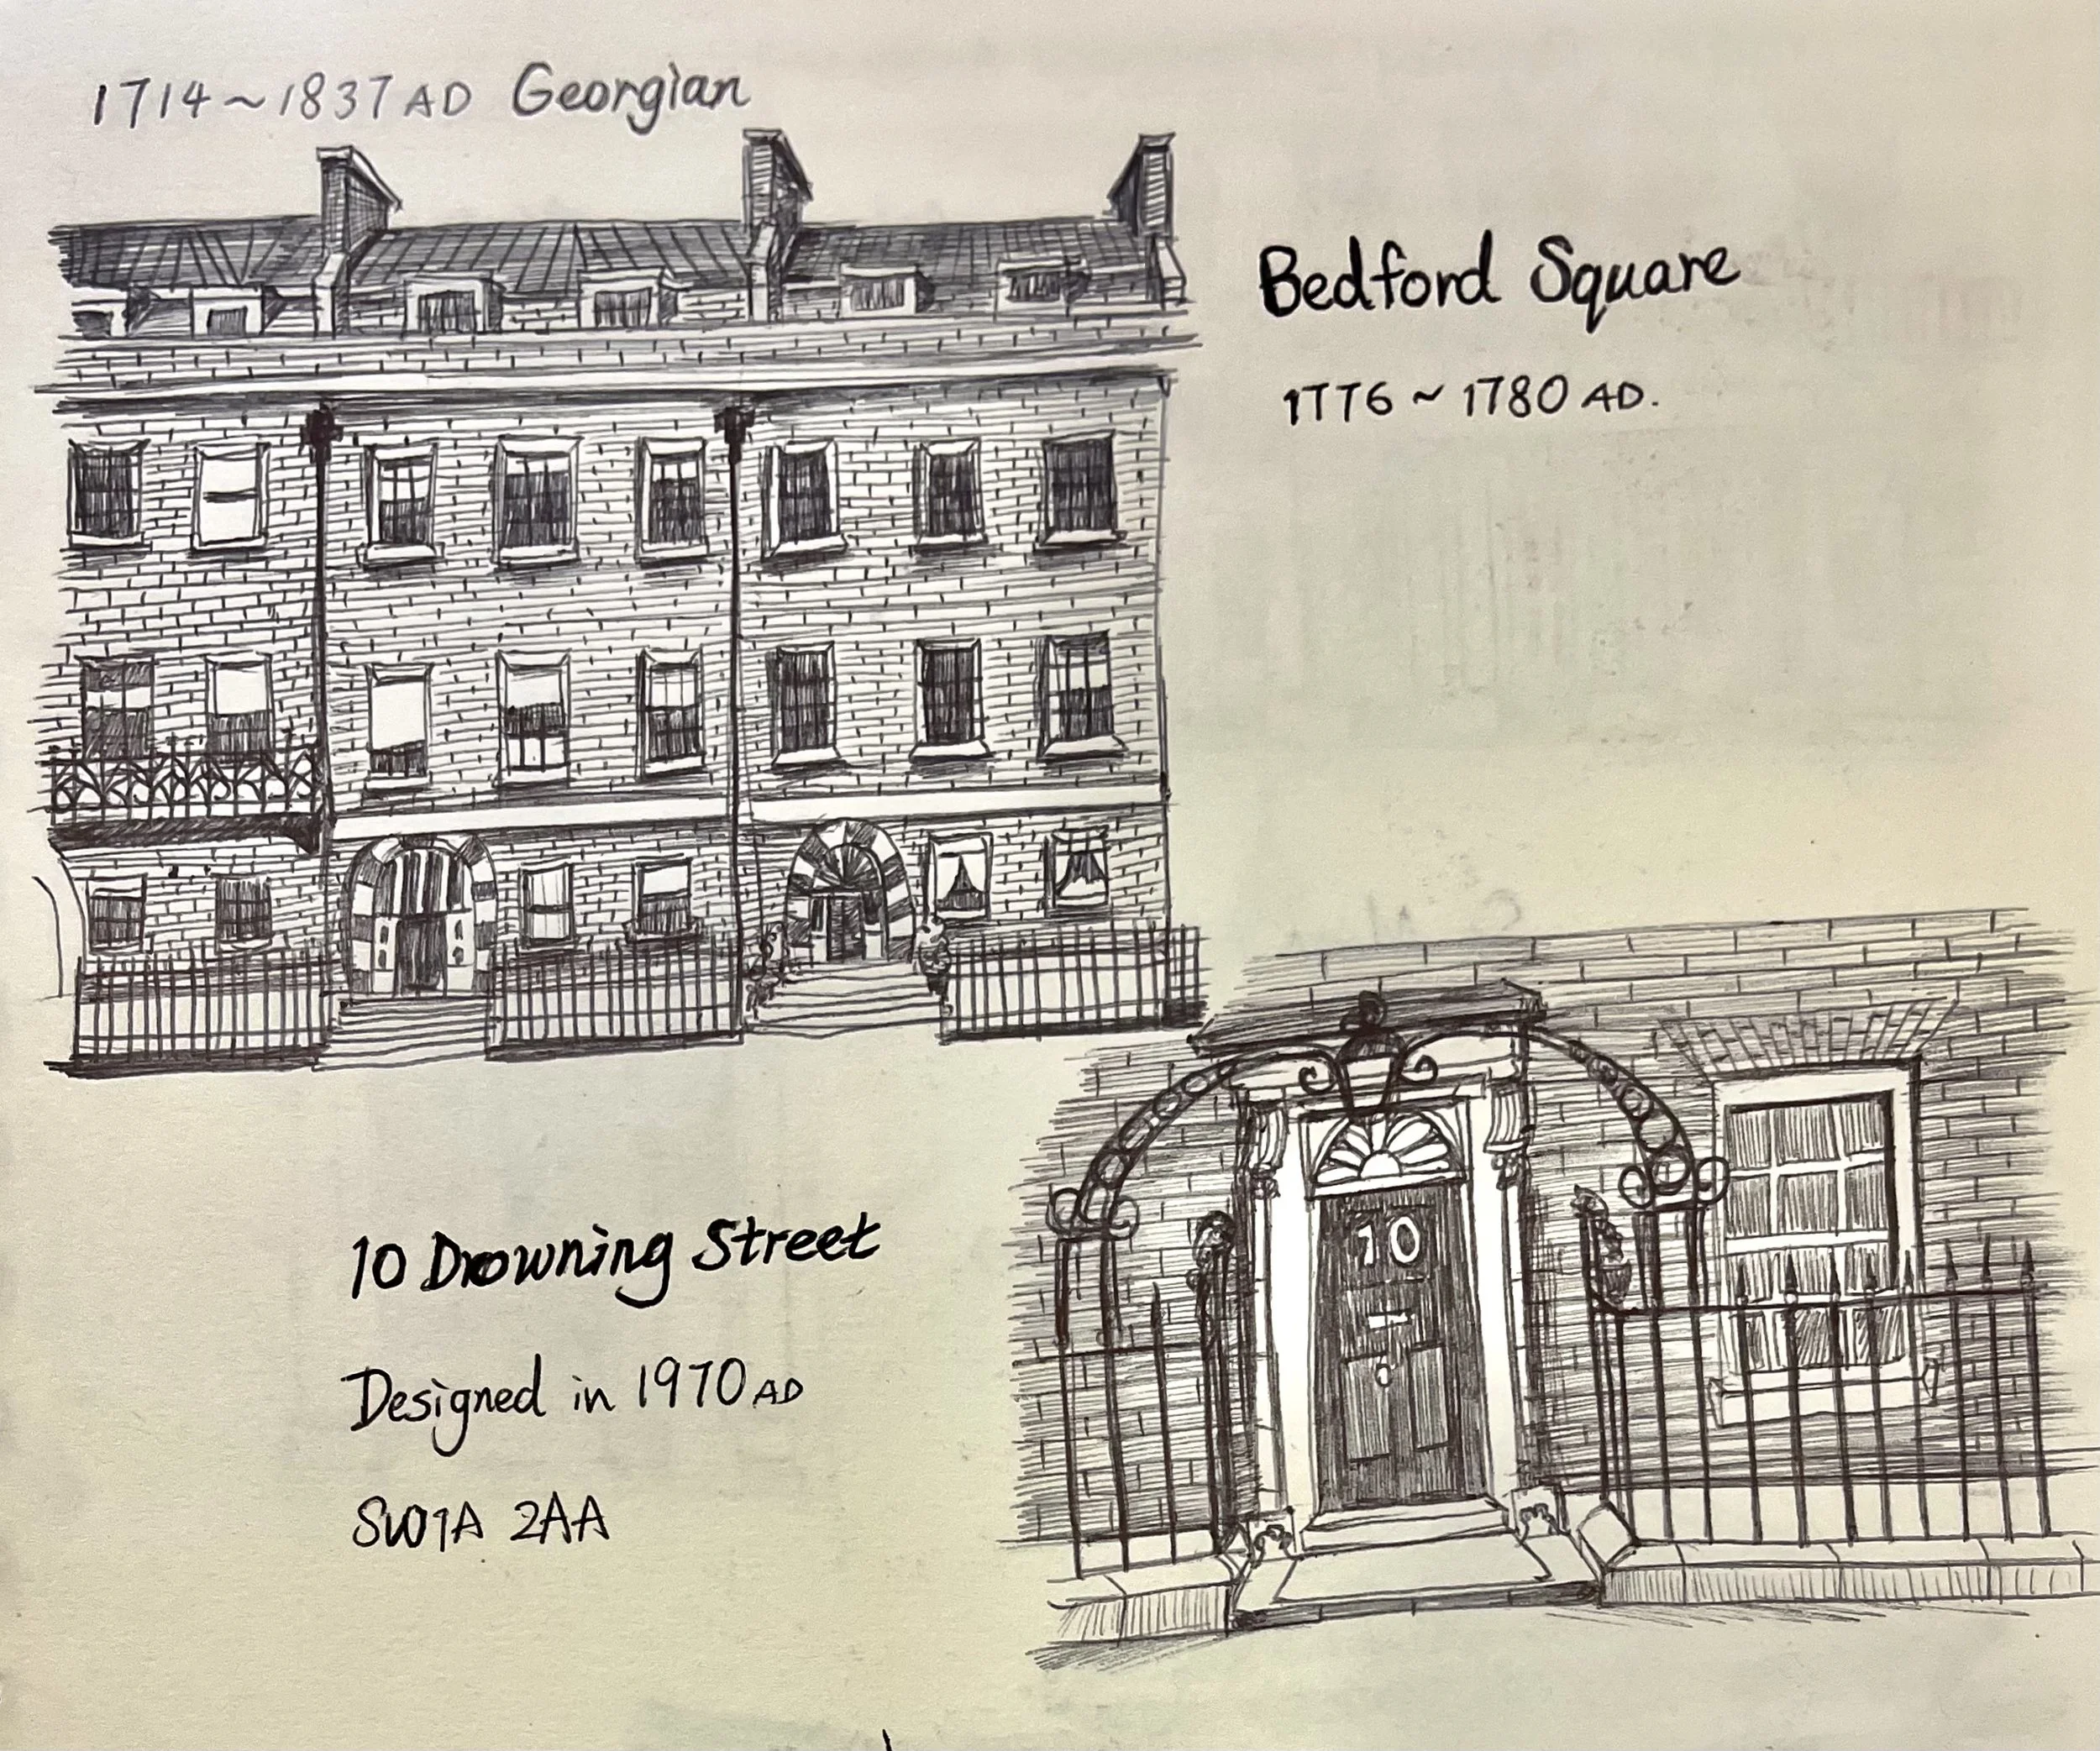 1714~1837 AD Georgian
Bedford Square
1776 ~ 1780 AD.
10 Drowning Street
Designed in 1970 AD
SW1A 2AA
10